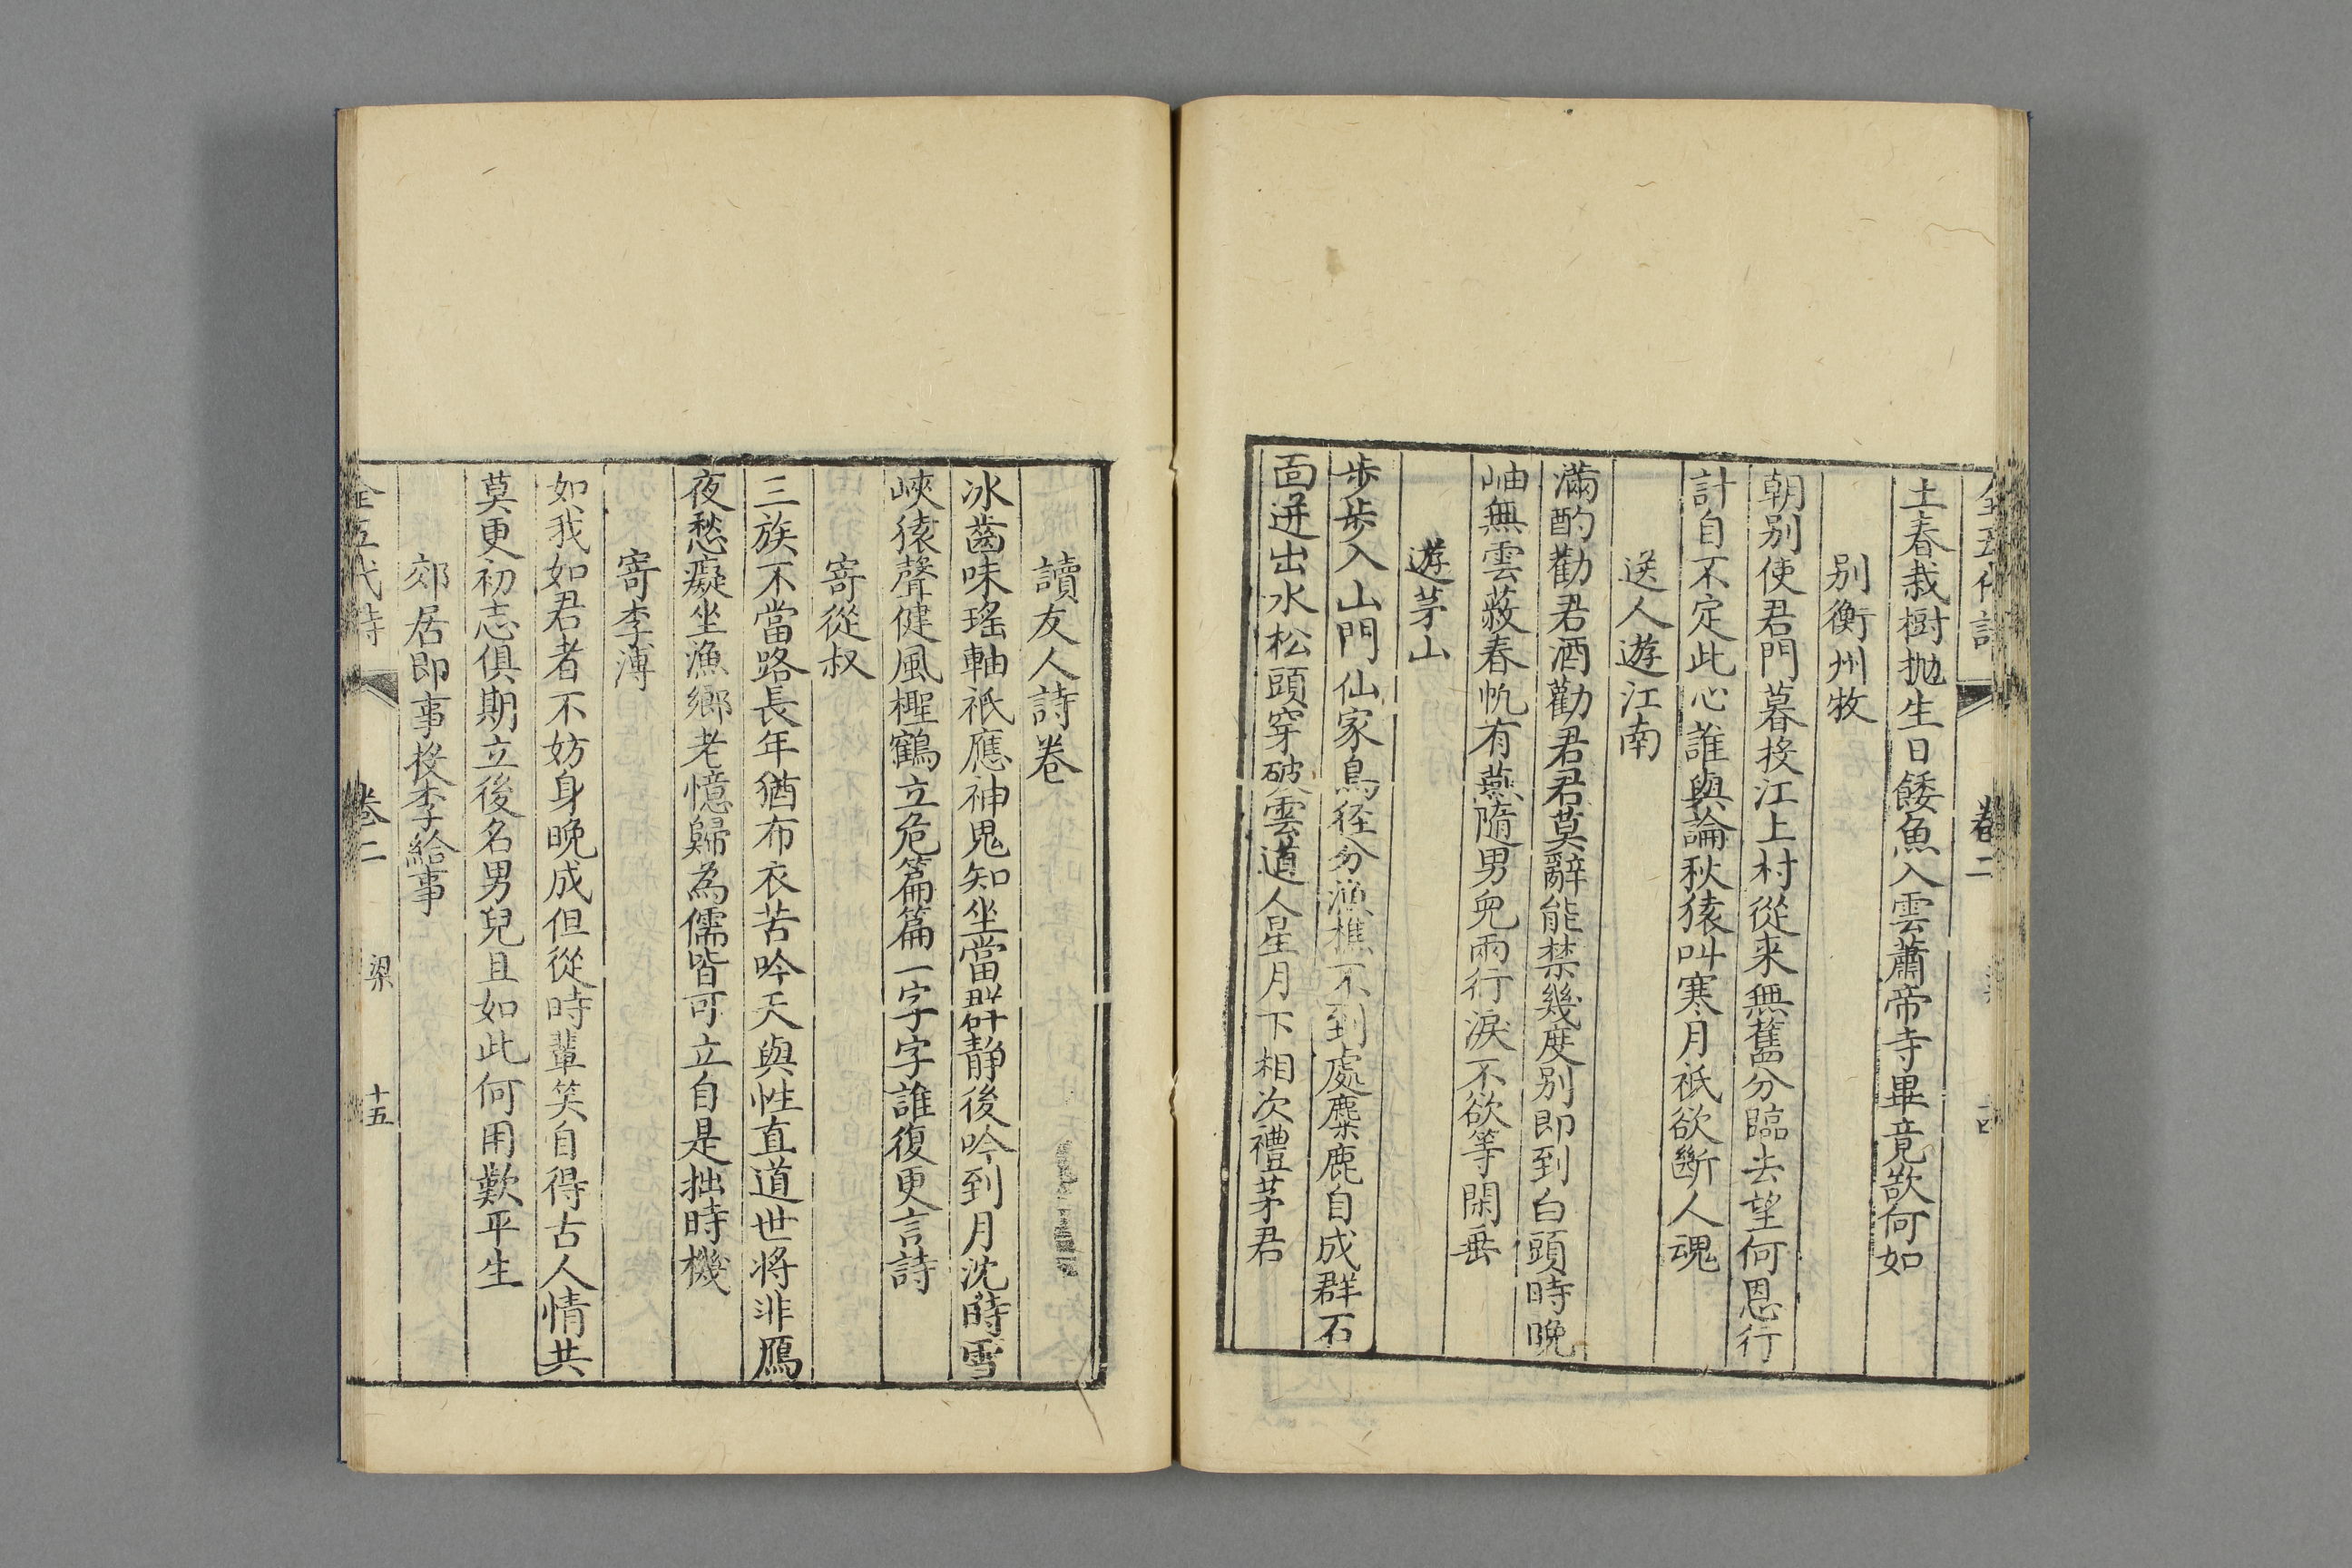 全五代詩 卷二
土春栽樹拋生日餧魚入雲蕭帝寺畢竟欲何如
別衡州牧
朝別使君門暮投江上村從来無舊分臨去望何恩行
計自不定此心誰與論秋猿叫寒月祇欲斷人魂
送人遊江南
滿酌勸君酒勸君君莫辭能禁幾度別即到白頭時晩
岫無雲蔽春帆有燕隨男兒兩行淚不欲等閑垂
遊茅山
歩歩入山門仙家鳥径分漁樵不到處麋鹿自成群石
面迸出水松頭穿破雲道人星月下相次禮茅君
讀友人詩卷
冰齒味瑤軸祇應神鬼知坐當群静後吟到月沈時雪
峽猿聲健風檉鶴立危篇篇一字字誰復更言詩
寄從叔
三族不當路長年猶布衣苦吟天與性直道世将非鴈
夜愁癡坐漁鄉老憶歸為儒皆可立自是拙時機
寄李溥
如我如君者不妨身晩成但從時輩笑自得古人情共
莫更初志俱期立後名男兒且如此何用歎平生
郊居即事投李給事
全五代詩 卷二 梁 十五